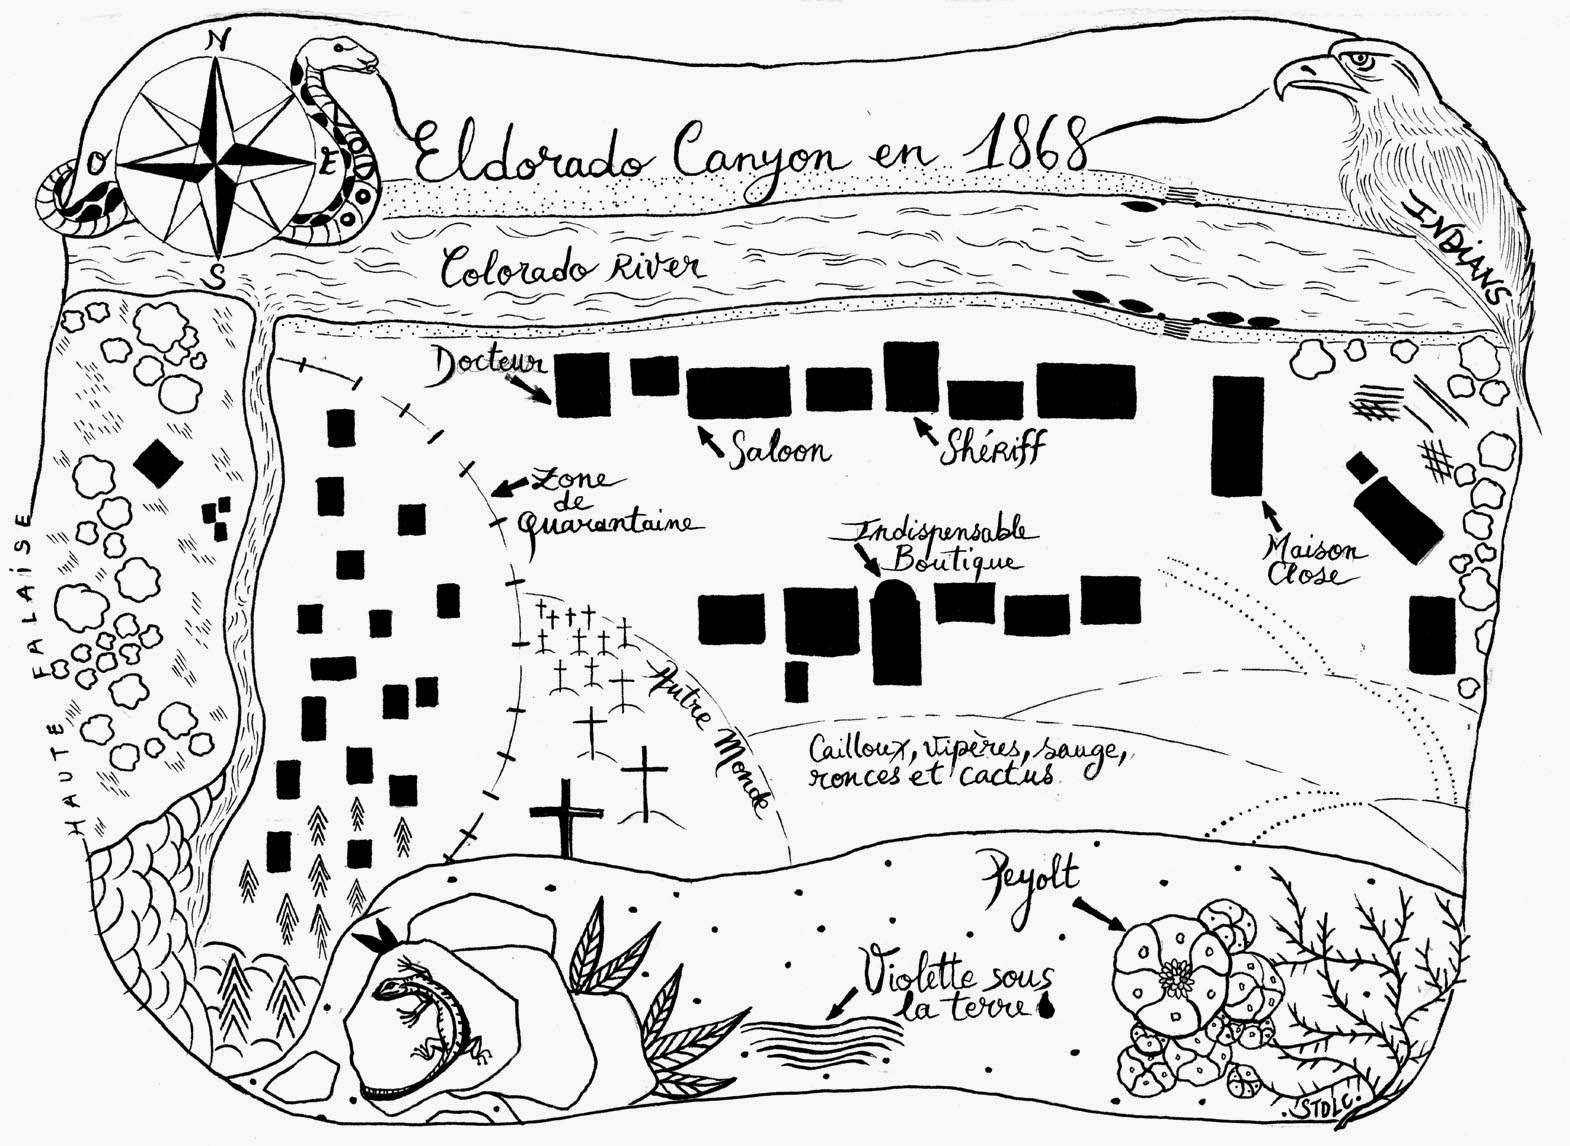 N
O
E
S
Eldorado Canyon en 1868
INDIANS
Colorado River
Docteur
Saloon
Shériff
Zone
de
Quarantaine
Indispensable
Boutique
Maison
Close
HAUTE FALAISE
Autre Monde
Cailloux, vipères, sauge,
ronces et cactus
Peyolt
Violette sous
la terre
STDLC.